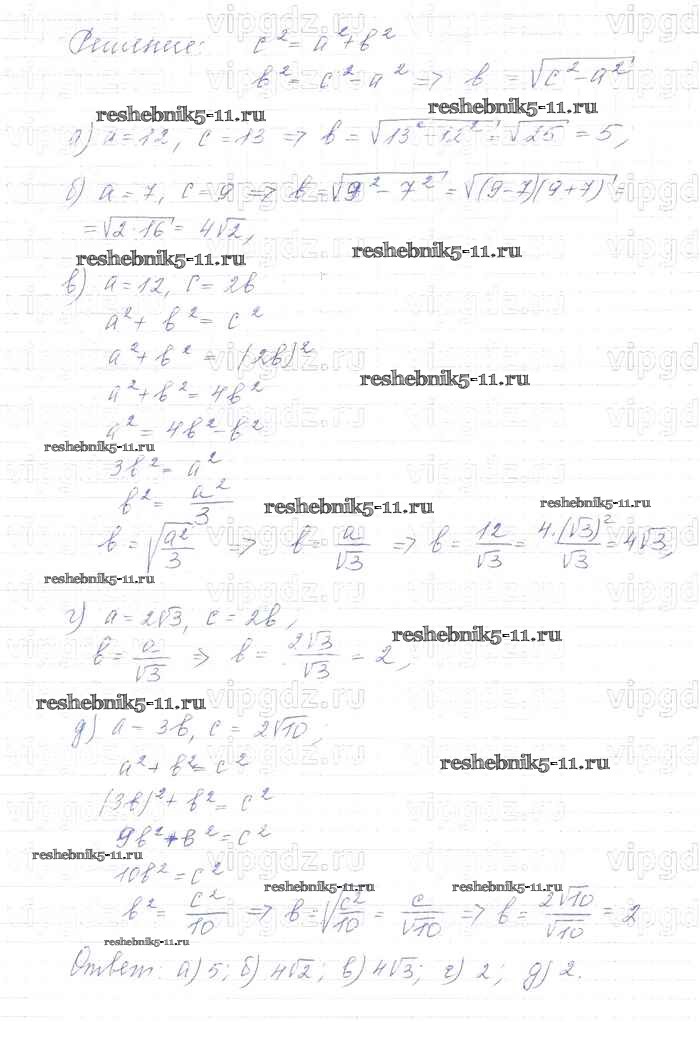 Решение: c² = a² + b²
b² = c² - a² => b = √(c² - a²)
reshebnik5-11.ru reshebnik5-11.ru
а) a = 12, c = 13 => b = √(13² - 12²) = √25 = 5;
б) a = 7, c = 9 => b = √(9² - 7²) = √((9-7)(9+7)) =
= √(2·16) = 4√2,
reshebnik5-11.ru reshebnik5-11.ru
в) a = 12, c = 2b
a² + b² = c²
a² + b² = (2b)²
reshebnik5-11.ru
a² + b² = 4b²
a² = 4b² - b²
reshebnik5-11.ru
3b² = a²
b² = a²/3
reshebnik5-11.ru reshebnik5-11.ru
b = √(a²/3) => b = a/√3 => b = 12/√3 = 4·(√3)²/√3 = 4√3,
reshebnik5-11.ru
г) a = 2√3, c = 2b,
reshebnik5-11.ru
b = a/√3 => b = 2√3/√3 = 2,
reshebnik5-11.ru
д) a = 3b, c = 2√10;
a² + b² = c²
reshebnik5-11.ru
(3b)² + b² = c²
9b² + b² = c²
reshebnik5-11.ru
10b² = c²
reshebnik5-11.ru reshebnik5-11.ru
b² = c²/10 => b = √(c²/10) = c/√10 => b = 2√10/√10 = 2.
reshebnik5-11.ru
Ответ: а) 5; б) 4√2; в) 4√3; г) 2; д) 2.
vipgdz.ru